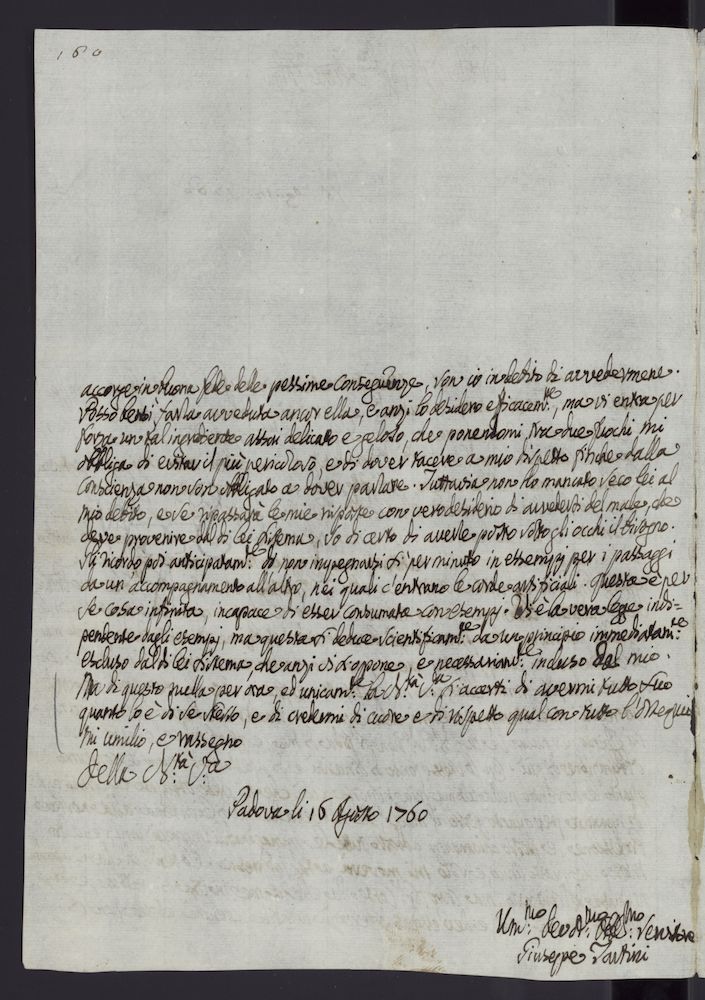 160
accorge in buona fede delle pessime conseguenze, son io in debito di avvedermene.
Posso bensì farla avveduta ancor ella, e anzi lo desidero efficacem:te, ma vi entra per
forza un tal ingrediente assai delicato e geloso, che ponendomi tra due fuochi mi
obbliga di evitar il più pericoloso, e di dover tacere a mio dispetto finche dalla
conscienza non son obbligato a dover parlare. Tuttavia non ho mancato seco lei al
mio debito, e se ripasserà le mie risposte con vero desiderio di avvedersi del male, che
deve provenire dal di lei sistema, so di certo di averle posto sotto gli occhi il bisogno.
Le ricordo poi anticipatam:te di non impegnarsi sì per minuto in essempj per i passaggi
da un accompagnamento all'altro, nei quali c'entrano le corde artificiali. Questa è per
se cosa infinita, incapace di esser consumata con esempj. Vi è la vera legge indi-
pendente dagli esempj, ma questa si deduce scientificam:te da un principio immediatam:te
escluso dal di lei sistema, che anzi vi si oppone, e necessariam:te incluso dal mio.
Ma di questo nulla per ora, ed unicam:te la N:ra S:a si accerti di avermi tutto suo
quanto lo è di se stesso, e di credermi di cuore e di rispetto qual con tutto l'ossequio
mi umilio, e rassegno
Della N:ra S:a
Padova li 16 Agosto 1760
Um:mo Devot:mo Obb:mo Servitore
Giuseppe Tartini